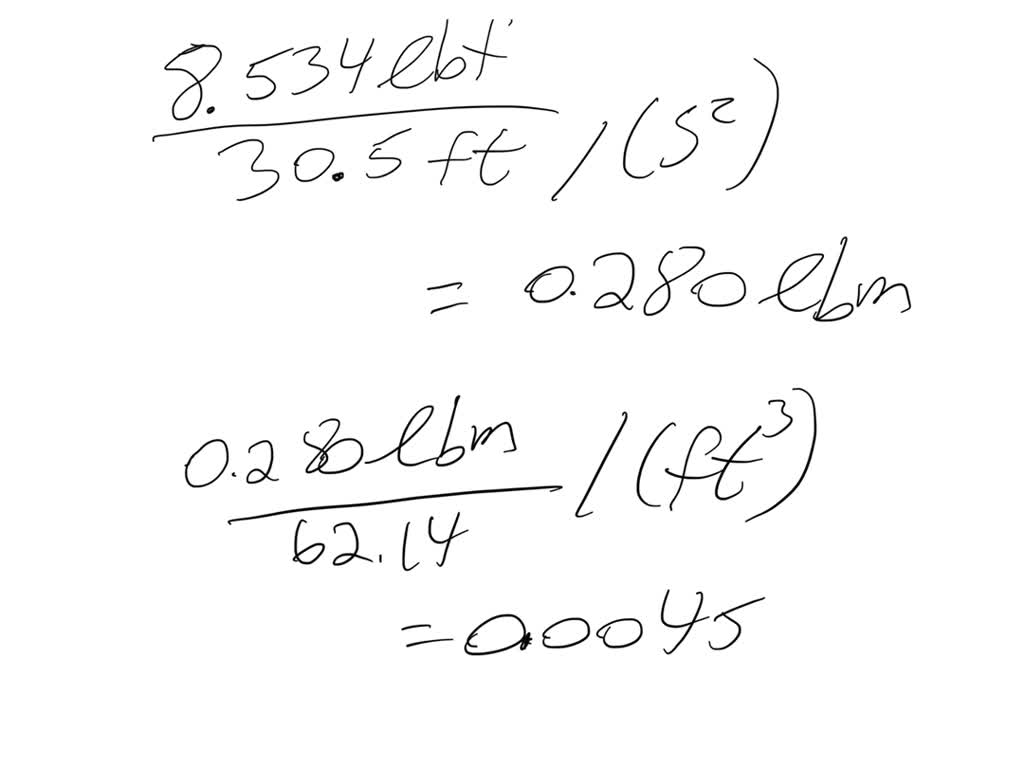 8.534 lbf
30.5 ft / (s²)
= 0.280 lbm
0.280 lbm
62.14 / (ft³)
= 0.0045